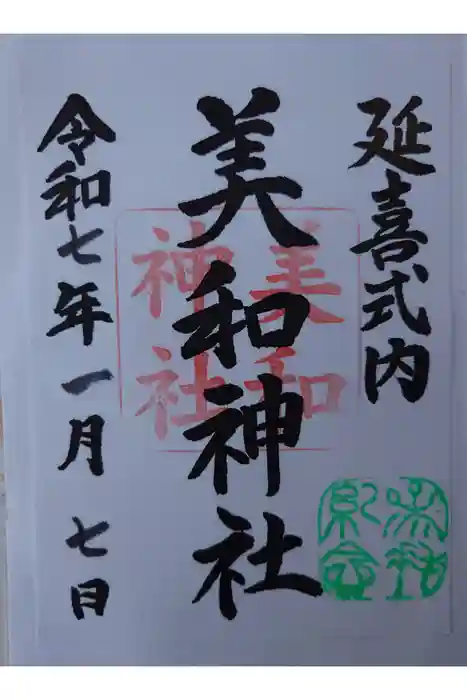 延喜式内
美和神社
美和神社
令和七年一月七日